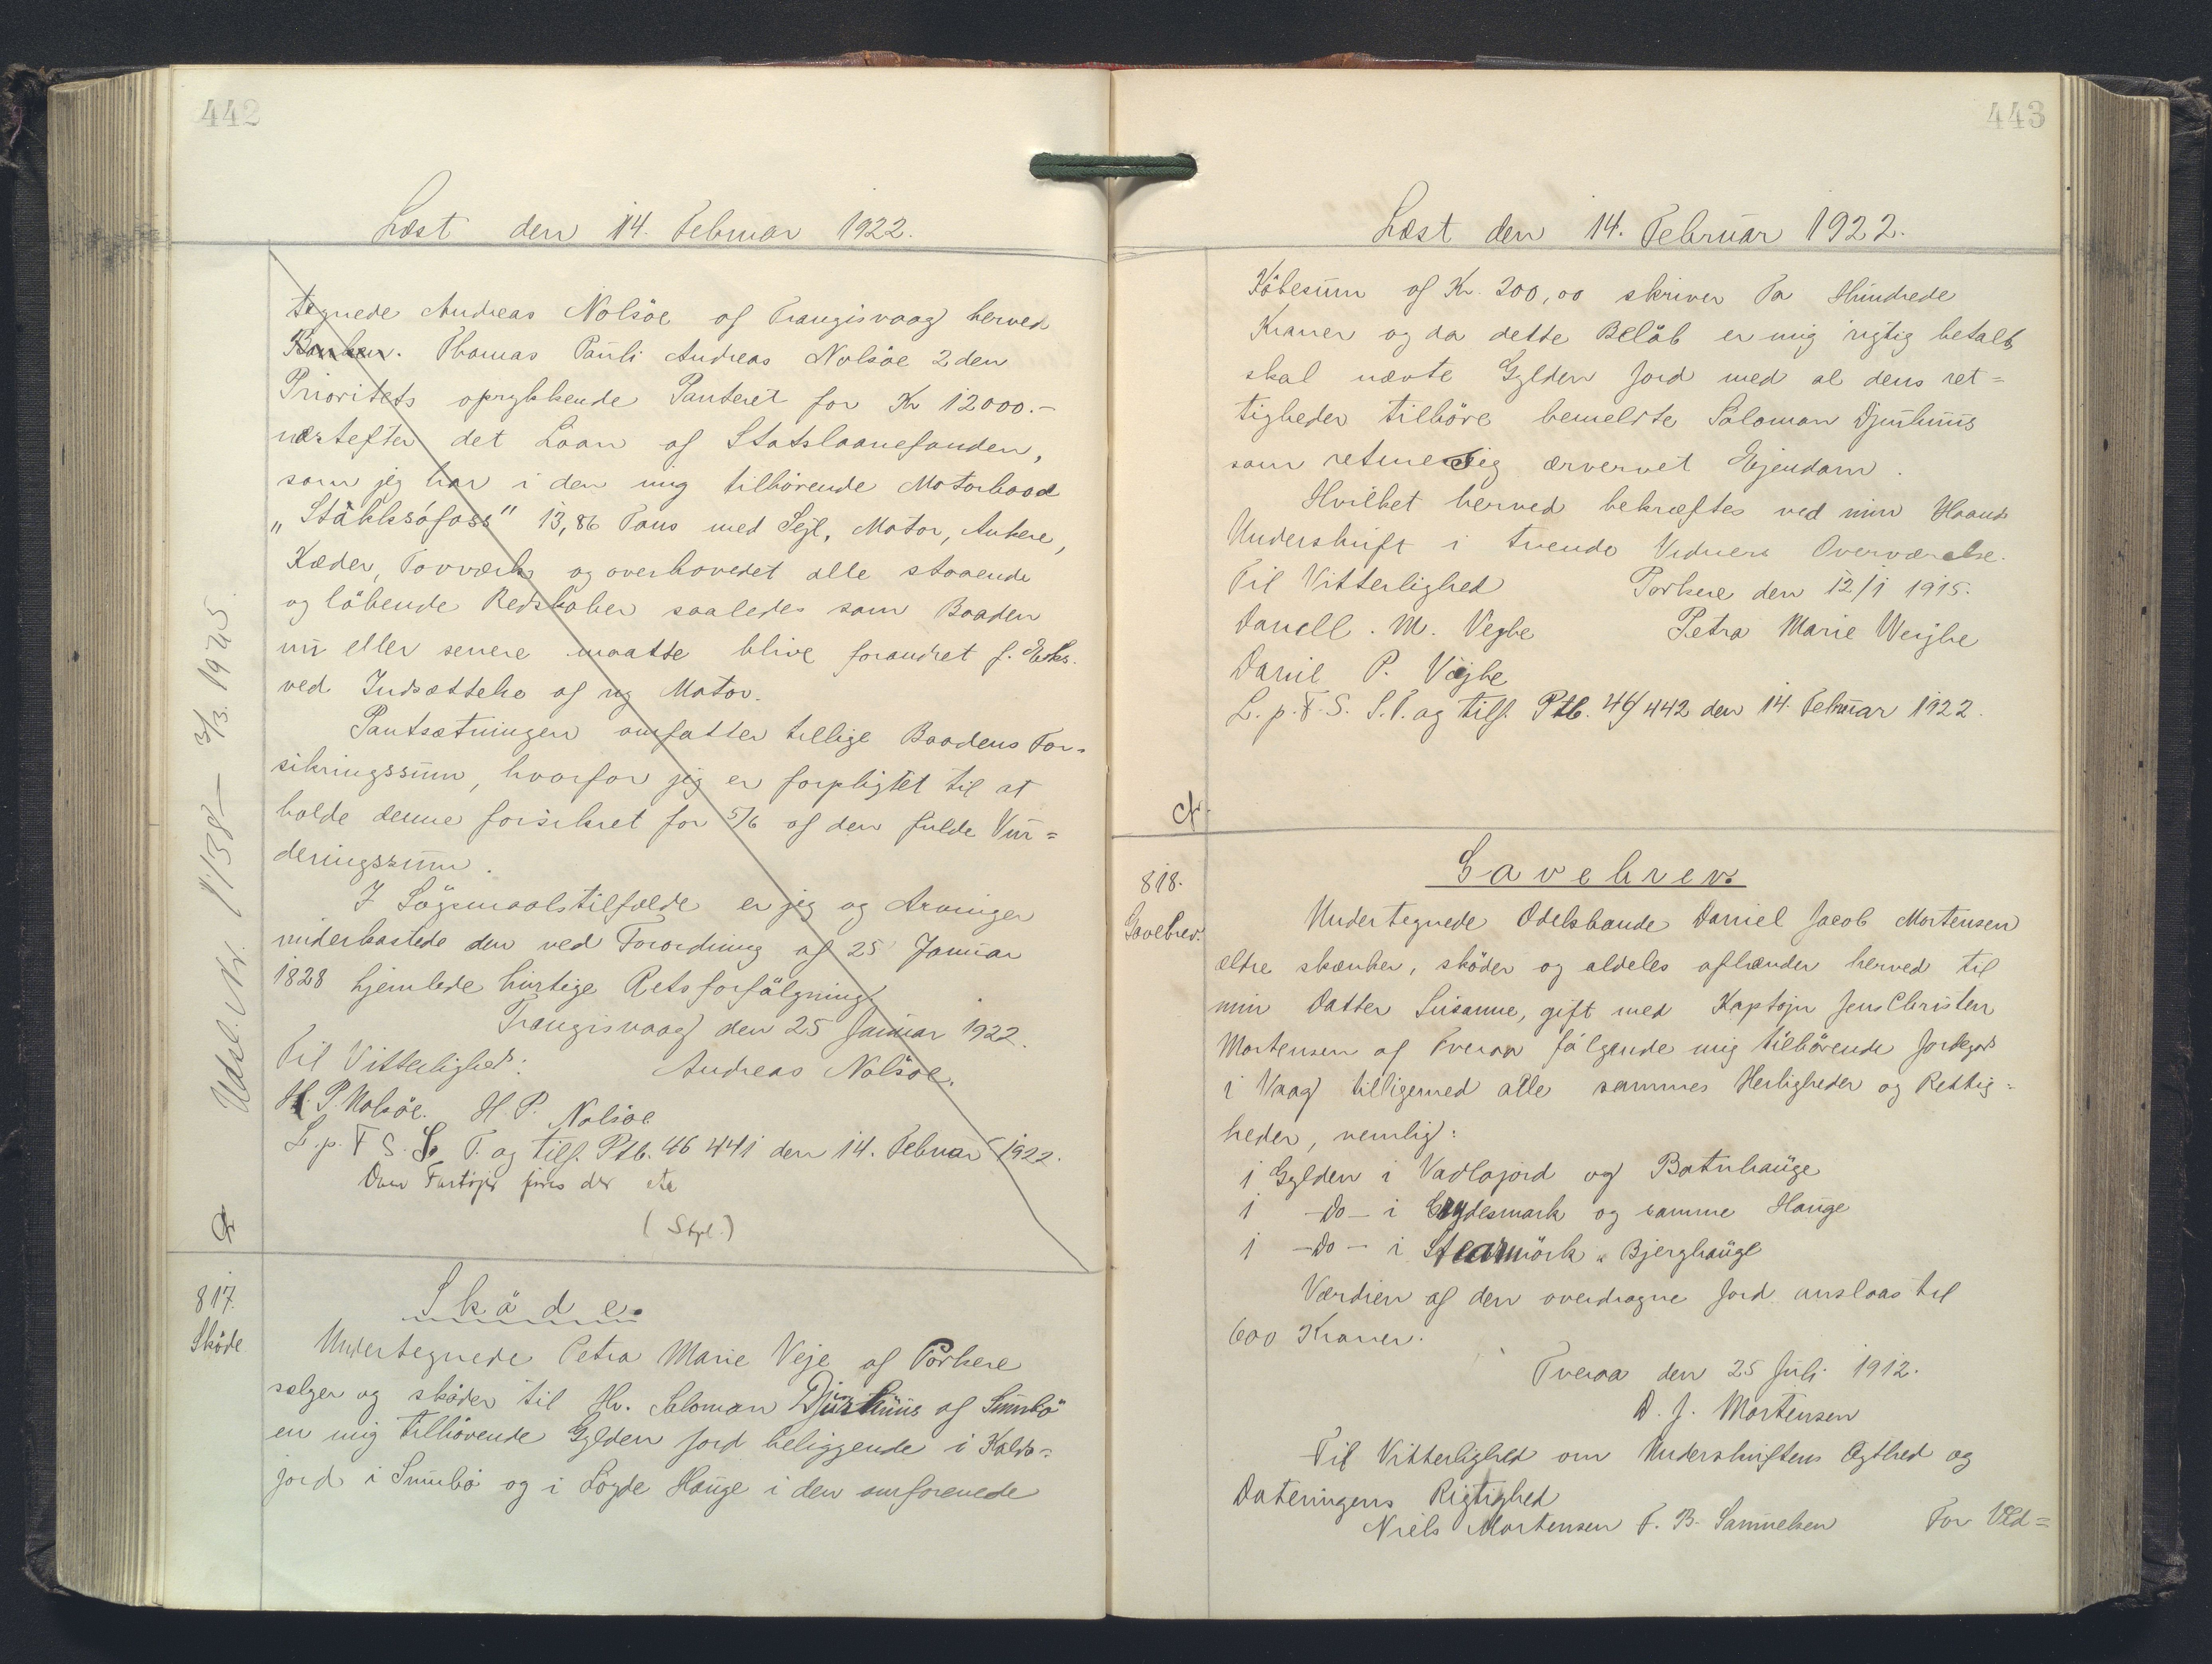 442
Læst den 14. Februar 1922.
tegnede Andreas Nolsöe af Trangisvaag herved
Thomas Pauli Andreas Nolsöe 2den
Prioritets oprykkende Panteret for Kr 12000.-
næstefter det Laan af Statslaanefonden,
som jeg har i den mig tilhörende Motorbaad
"Stákksáfoss" 13,86 Tons med Sejl, Motor, Ankere,
Kæder, Tovværk og overhovedet alle staaende
og löbende Redskaber saaledes som Baaden
nu eller senere maatte blive forandret f. Eks.
ved Indsættelse af ny Motor.
Pantsætningen omfatter tillige Baadens For-
sikringssum, hvorfor jeg er forpligtet til at
holde denne forsikret for 5/6 af den fulde Vur=
deringssum.
I Sögsmaalstilfælde er jeg og Arvinger
underkastede den ved Forordning af 25 Januar
1828 hjemlede hurtige Retsforfölgning.
Trangisvaag den 25 Januar 1922.
Til Vitterlighed: Andreas Nolsöe.
H. P. Nolsöe. H. P. Nolsöe
L. p. F. S. S. T. og tilf. Ptb. 46 441 den 14. Februar 1922.
Over Fartöjer föres der
(Skpl.)
Udsl. Nr. 1138 - 3/3. 1925.
817.
Sköde
Sköde.
Undertegnede Petra Marie Veje af Porkere
sælger og sköder til Hr. Saloman Djurhuus af Sumbö
en mig tilhörende Gylden Jord beliggende i Kalds=
jord i Sumbö og i Lögde Hauge i den omforenede
443
Læst den 14. Februar 1922.
Köbesum af Kr. 200,00 skriver To Hundrede
Kroner og da dette Belöb er mig rigtig betalt,
skal nævte Gylden Jord med al dens ret=
tigheder tilhöre bemeldte Saloman Djurhuus
som retmessig ærvervet Ejendom.
Hvilket herved bekræftes ved min Haands
Underskrift i tvende Vidners Overværelse.
Til Vitterlighed Porkere den 12/1 1915.
Daniell. M. Vejhe Petra Marie Weijhe
Daniel P. Vejhe
L. p. F. S. S. T. og tilf. Ptb. 46/442 den 14. Februar 1922.
818.
Gavebrev.
Gavebrev.
Undertegnede Odelsbonde Daniel Jacob Mortensen
ældre skænker, sköder og aldeles afhænder herved til
min Datter Susanne, gift med Kaptajn Jens Christen
Mortensen af Tveraa fölgende mig tilhörende Jordegods
i Vaag tilligemed alle sammes Herligheder og Rettig=
heder, nemlig:
1 Gylden i Vadlajord og Botnhauge
1 -Do- i Eydesmark og samme Hauge
1 -Do- i Stearmörk " Bjerghauge
Værdien af den overdragne Jord anslaas til
600 Kroner.
Tveraa den 25 Juli 1912.
D. J. Mortensen
Til Vitterlighed om Underskriftens Ægthed og
Dateringens Rigtighed
Niels Mortensen F. B. Samuelsen For Vid=